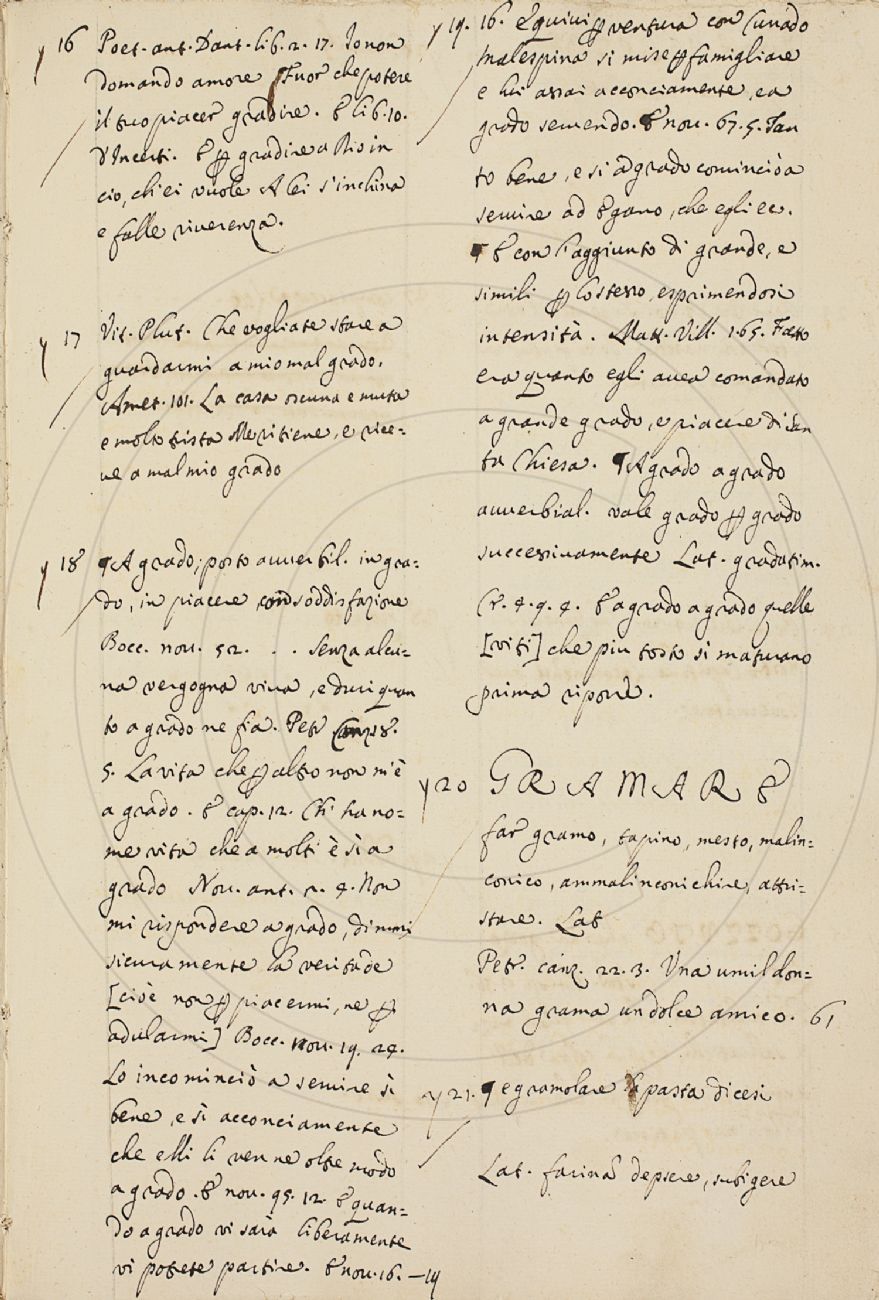 y 16 Poet. ant. Dant. lib. 2. 17. Io non
domando amore Fuor che potere
il tuo piacer gradire. E lib. 10.
d'Incerti. E ꝑ gradire a Rio in
cio, chi ei vuole A lei s'inchina
e falle riverenza.
y 17 Vit. Plut. Che vogliate stare a
guardarmi a mio mal grado.
Amet. 101. La casa oscura e muta
e molto trista Me ritiene, e rice=
ve a mal mio grado
y 18 ¶ A grado, posto avverbil. in gra=
do, in piacere con soddisfazione
Bocc. nov. 52. . . Senza alcu=
na vergogna viva, e
to a grado ne fia. Petr canz 18.
5. La vita che ꝑ altro non m'è
a grado. E cap. 12. Ch' ha no=
me vita che a molti è sì a
grado Nov. ant. 2. 4. Non
mi rispondere a grado, dimmi
sicuramente la veritade
[cioè non ꝑ piacermi, ne ꝑ
adularmi] Bocc. nov. 19. 24.
Lo incominciò a servire sì
bene, e sì acconciamente
che elli li venne oltre modo
a grado. E nov. 95. 12. E quan=
do a grado vi sarà liberamente
vi potete partire. E nov. 16. — 19
y 19. 16. E quivi ꝑ ventura con Currado
Malespina si mise ꝑ famigliare
e lui assai acconciamente, e a
grado servendo. E nov. 67. 5. Tan
to bene, e sì a grado cominciò a
servire ad Egano, che egli ec.
¶ E con l'aggiunto di grande, e
simili ꝑ lo stesso, esprimendosi
intensità. Matt. Vill. 1. 65. Fatto
era quanto egli avea comandato
a grande grado, e piacere di San
ta Chiesa. ¶ A grado a grado
avverbial. vale grado ꝑ grado
successivamente Lat. gradatim.
Cr. 4. 9. 4. E a grado a grado quelle
[viti] che piu tosto si maturano
prima riporre.
y 20 GRAMARE
far gramo, tapino, mesto, malin=
conico, ammalinconichire, attri=
stare. Lat
Petr. canz. 22. 3. Una umil don=
na grama un dolce amico. 61
y 21. ¶ e gramolare la pasta dicesi
Lat. farina depsere, subigere